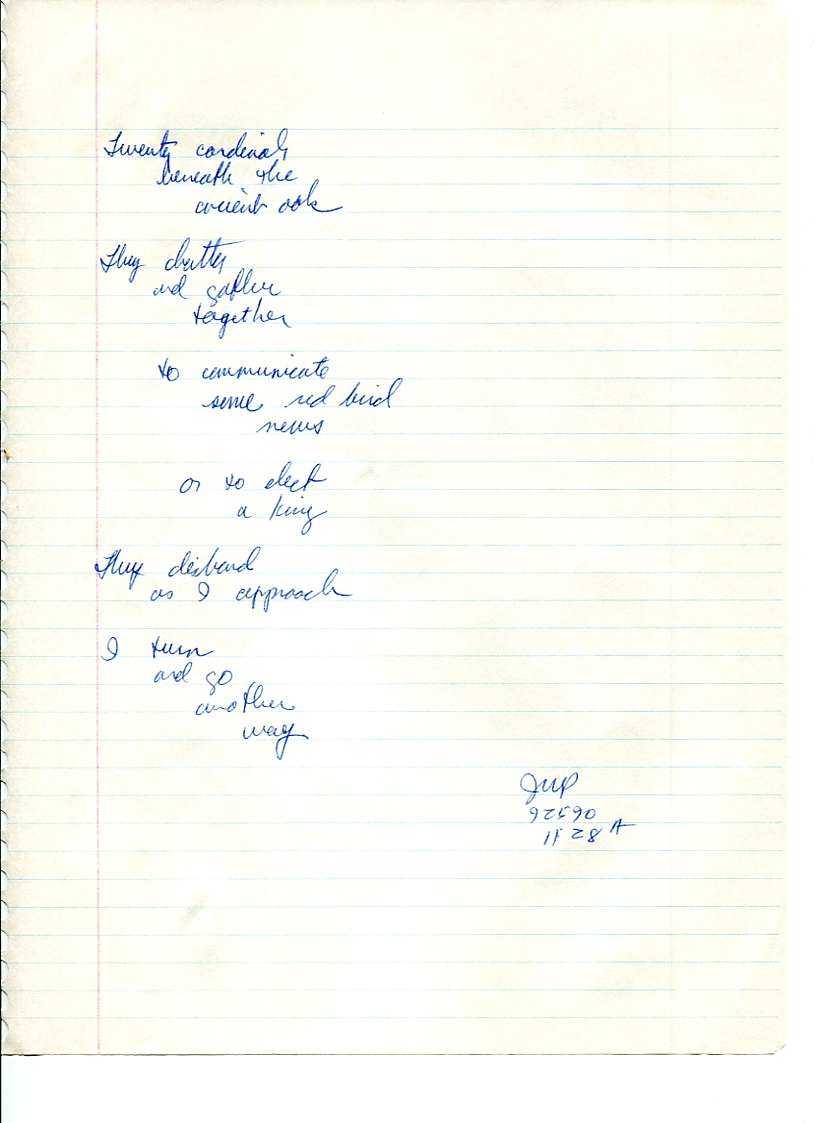 Twenty cardinals
beneath the
ancient oak
They chatter
and gather
together
to communicate
some red bird
news
or to elect
a king
They disband
as I approach
I turn
and go
another
way